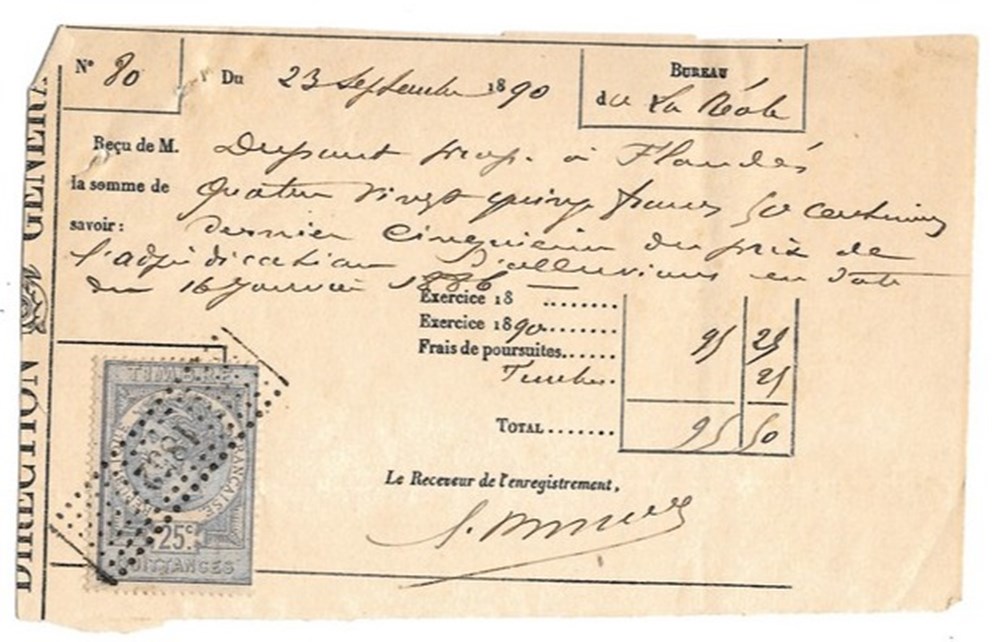 N° 80
Du 23 Septembre 1890
BUREAU
de La Réole
Reçu de M. Dupont prop. à Flaudès
la somme de Quatre vingt quinze francs 50 centimes
savoir : Dernier cinquième du prix de
l'adjudication d'alluvions en date
du 16 Janvier 1886
Exercice 18 ........
Exercice 1890........ 95 25
Frais de poursuites......
Timbre. 25
TOTAL....... 95 50
Le Receveur de l'enregistrement,
DIRECTION GÉNÉRA
TIMBRE
RÉPUBLIQUE FRANÇAISE
25c
QUITTANCES